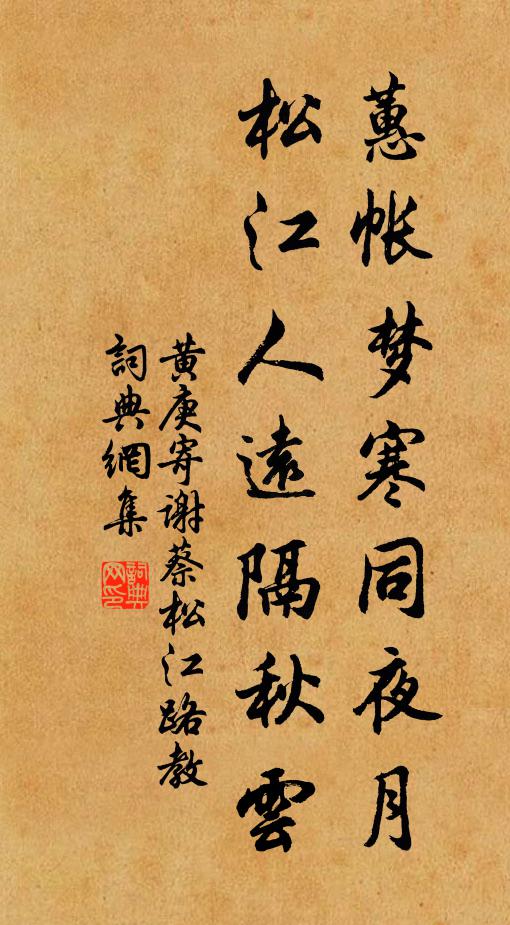 蕙帐梦寒同夜月
松江人遠隔秋雲
黄庚寄谢蔡松江路教
詞典網集
詞典网印